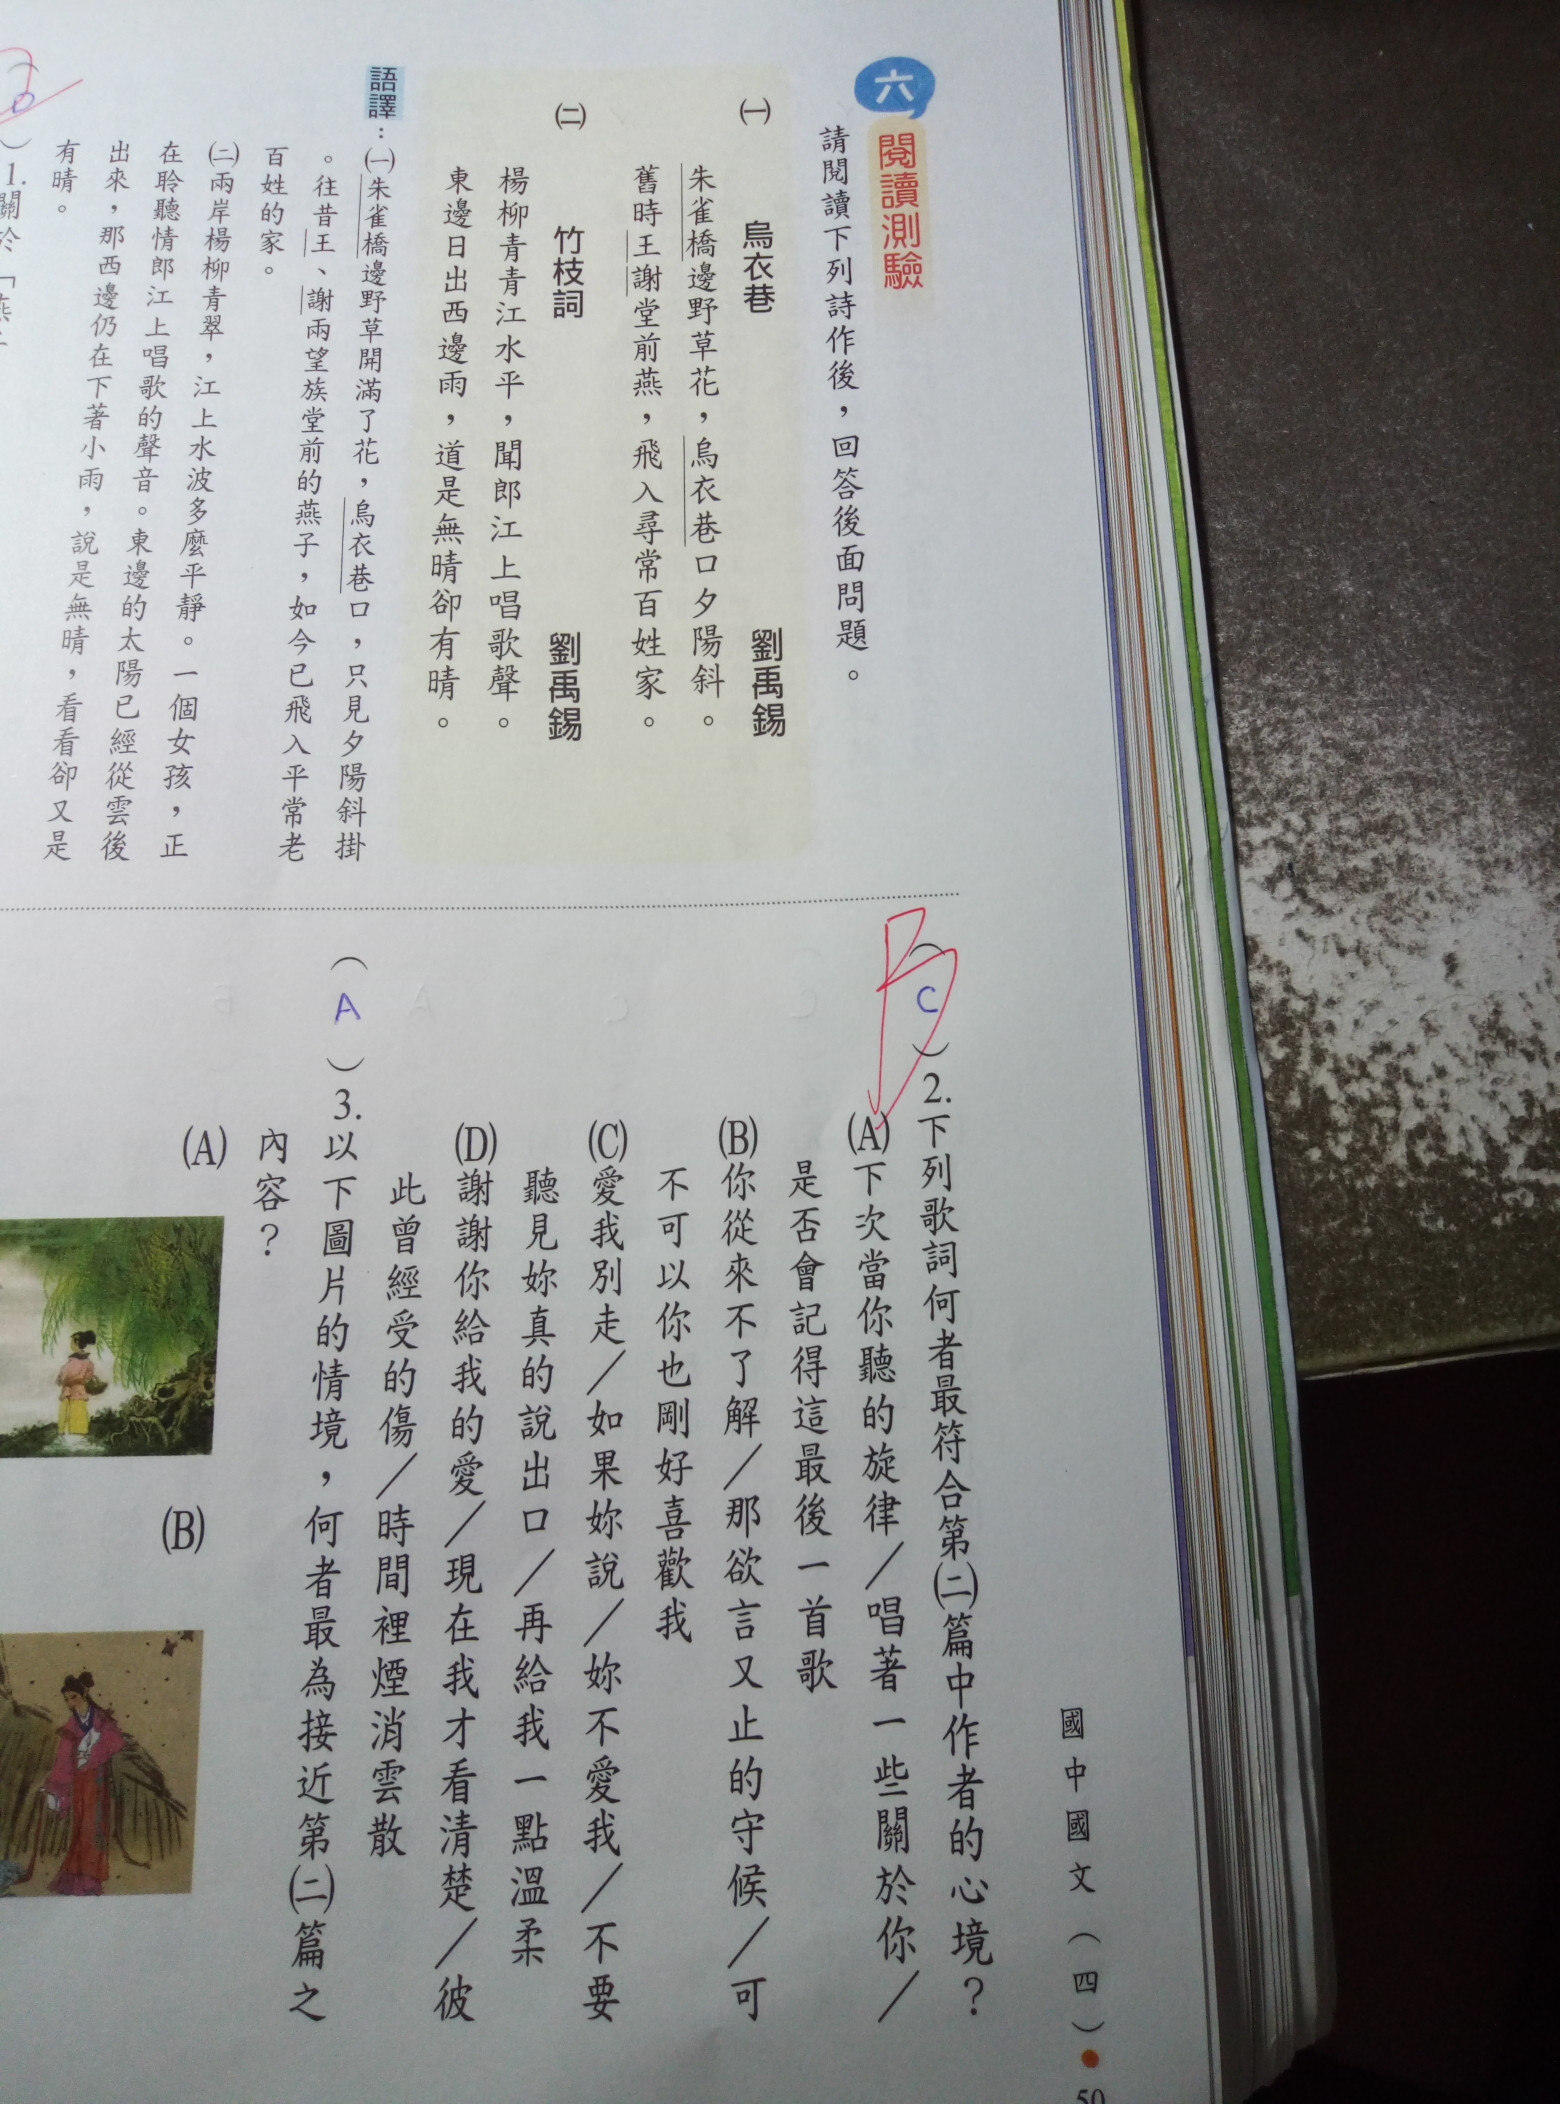 六 閱讀測驗
請閱讀下列詩作後，回答後面問題。
㈠ 烏衣巷 劉禹錫
朱雀橋邊野草花，烏衣巷口夕陽斜。
舊時王謝堂前燕，飛入尋常百姓家。
㈡ 竹枝詞 劉禹錫
楊柳青青江水平，聞郎江上唱歌聲。
東邊日出西邊雨，道是無晴卻有晴。
語譯：㈠朱雀橋邊野草開滿了花，烏衣巷口，只見夕陽斜掛
。往昔王、謝兩望族堂前的燕子，如今已飛入平常老
百姓的家。
㈡兩岸楊柳青翠，江上水波多麼平靜。一個女孩，正
在聆聽情郎江上唱歌的聲音。東邊的太陽已經從雲後
出來，那西邊仍在下著小雨，說是無晴，看看卻又是
有晴。
）1.關於「燕子
（C）2.下列歌詞何者最符合第㈡篇中作者的心境？
(A)下次當你聽的旋律／唱著一些關於你／
是否會記得這最後一首歌
(B)你從來不了解／那欲言又止的守候／可
不可以你也剛好喜歡我
(C)愛我別走／如果妳說／妳不愛我／不要
聽見妳真的說出口／再給我一點溫柔
(D)謝謝你給我的愛／現在我才看清楚／彼
此曾經受的傷／時間裡煙消雲散
（A）3.以下圖片的情境，何者最為接近第㈡篇之
內容？
(A)
(B)
國中國文（四）●50